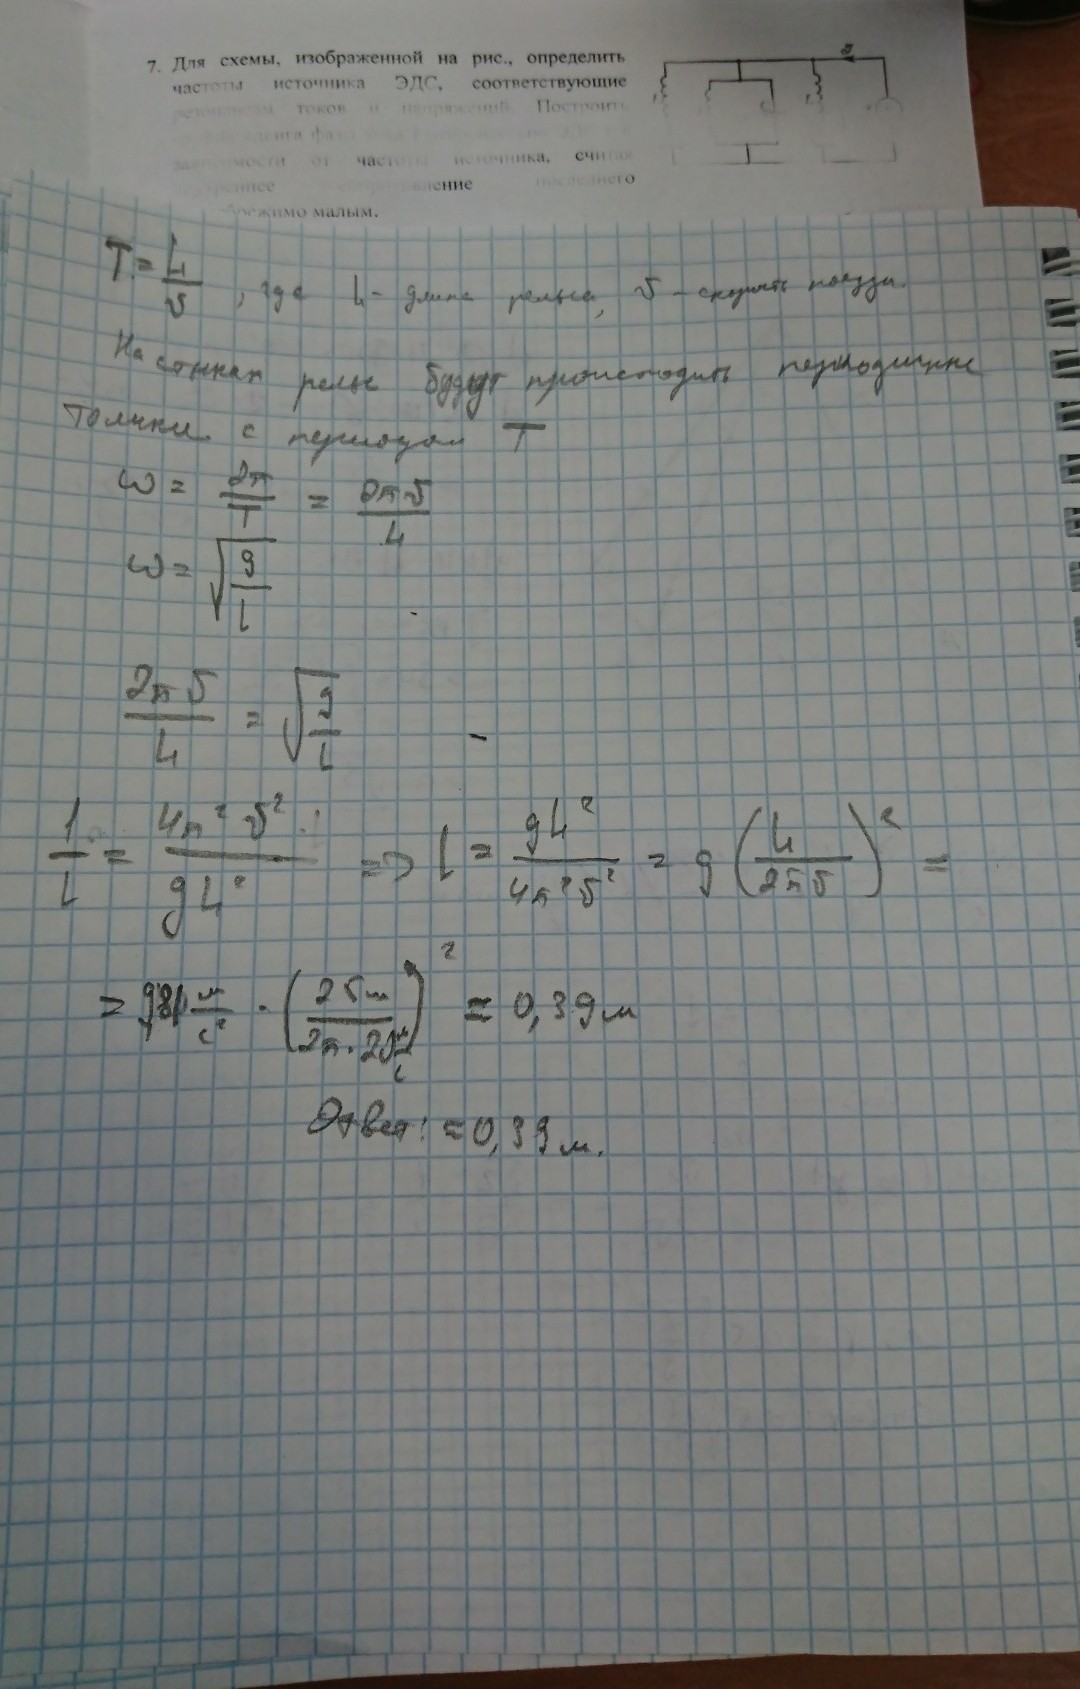 7. Для схемы, изображенной на рис., определить
частоты источника ЭДС, соответствующие
токов и напряжений. Построить
зависимости от частоты источника, считая
последнего
малым.
T = L/v, где L - длина рельса, v - скорость поезда.
На стыках рельс будут происходить периодичные
толчки с периодом T
ω = 2π/T = 2πv/L
ω = √(g/l)
2πv/L = √(g/l)
1/l = 4π²v²/gL² => l = gL²/4π²v² = g(L/2πv)² =
= 9,81 м/с² · (25м/2π·20м/с)² = 0,39м
Ответ: ≈0,39м.